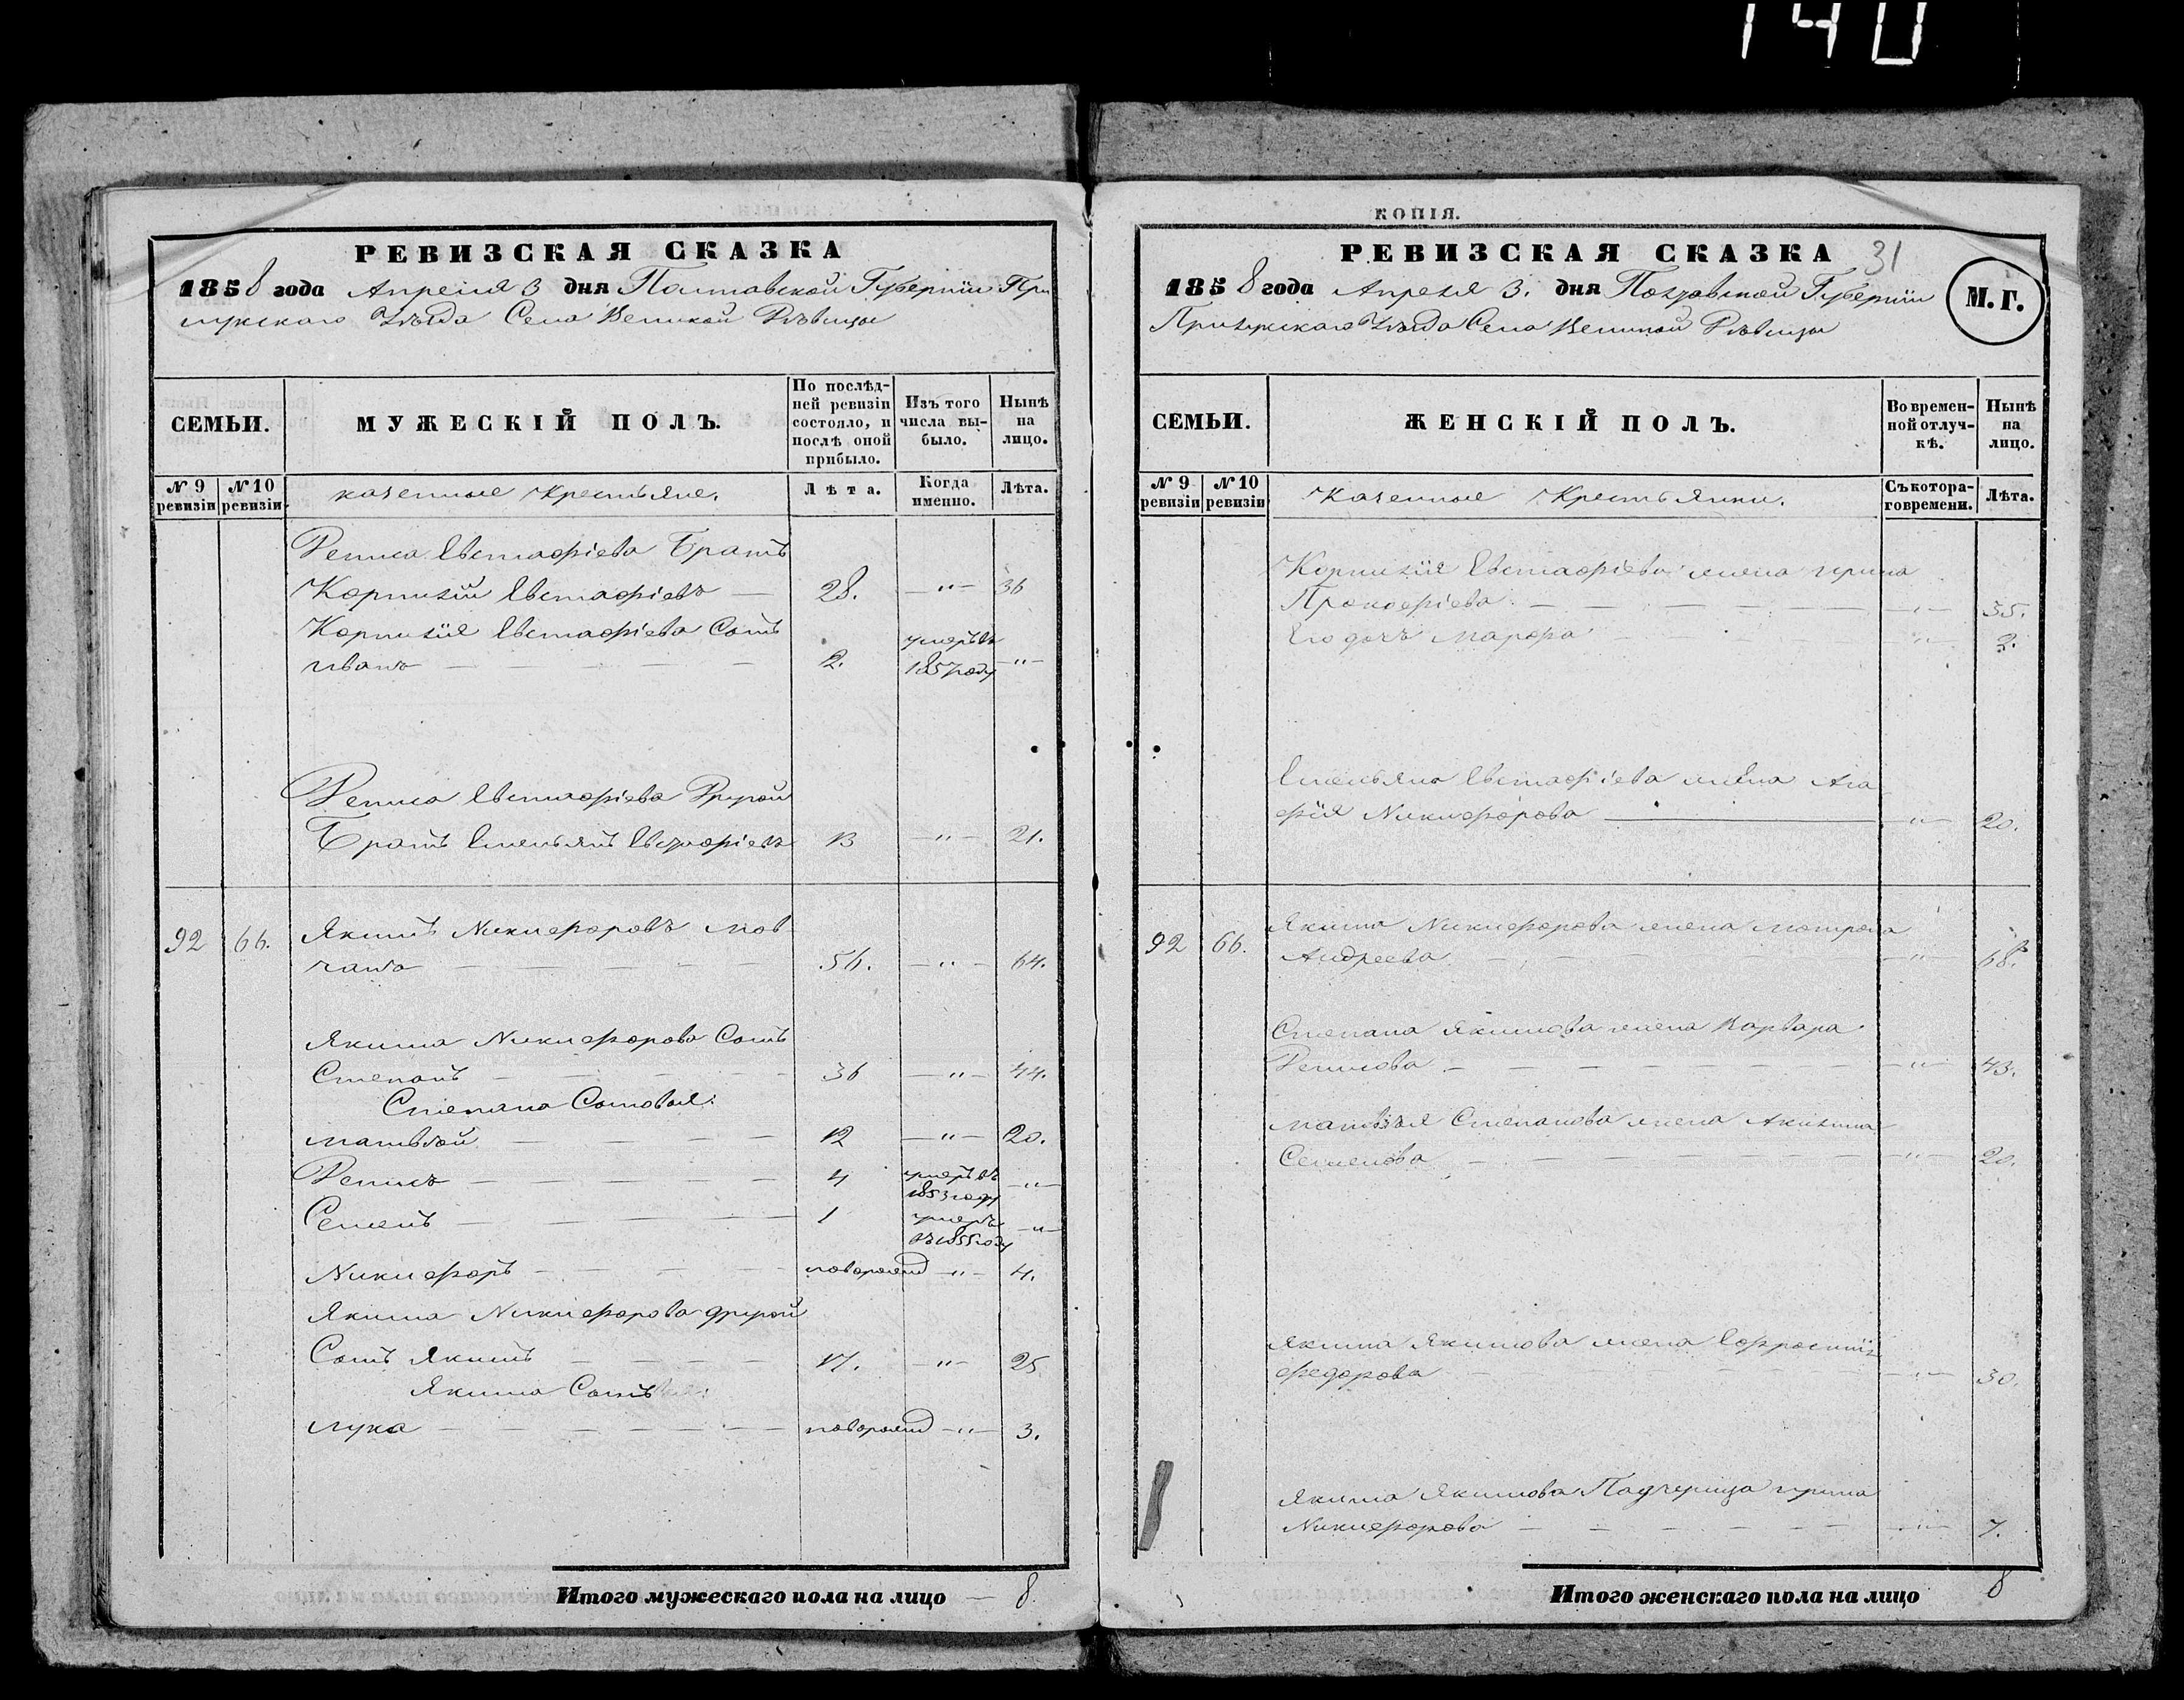 140
РЕВИЗСКАЯ СКАЗКА
1858 года Апреля 3 дня Полтавской Губернии При
лукскаго Уѣзда Села Великой Дѣвицы
СЕМЬИ.
МУЖЕСКІЙ ПОЛЪ.
По послѣд-
ней ревизіи
состояло, и
послѣ оной
прибыло.
Изъ того
числа вы-
было.
Нынѣ
на
лицо.
№ 9
ревизіи
№ 10
ревизіи
казенные Крестьяне.
Лѣта.
Когда
именно.
Лѣта.
Евстафіева Братъ
Корнилій Евстафіевъ — 28. — " — 36
Корнилія Евстафіева Сынъ умеръ въ
Иванъ — — — — — 2. 1857 году — " —
Евстафіева Другой
Братъ Емельянъ Евстафіевъ 13 — " — 21.
92 66. Якимъ Никифоровъ Мов
чанъ — — — — — 56. — " — 64.
Якима Никифорова Сынъ
Степанъ — — — — 36 — " — 44.
Степана Сыновья:
Матвѣй — — — — 12 — " — 20.
Денисъ — — — — — 4 умеръ въ 1853 году — " —
Семенъ — — — — — 1 умеръ въ 1855 году — " —
Никифоръ — — — — новорожд — " — 4.
Якима Никифорова другой
Сынъ Якимъ — — — — 17. — " — 25
Якима Сынъ
Лука — — — — — — новорожд — " — 3.
Итого мужескаго пола на лицо — 8.
КОПІЯ.
РЕВИЗСКАЯ СКАЗКА 31
1858 года Апреля 3. дня Полтавской Губерніи
Прилукскаго Уѣзда Села Великой Дѣвицы
М. Г.
СЕМЬИ.
ЖЕНСКІЙ ПОЛЪ.
Во времен-
ной отлуч-
кѣ.
Нынѣ
на
лицо.
№ 9
ревизіи
№ 10
ревизіи
Казенные Крестьянки.
Съ котора-
го времени.
Лѣта.
Корнилія Евстафіева жена Ирина
Прокофіева — — — — — — " — 35.
Его дочь Марфа — " —
Емельяна Евстафіева жена Ага
фія Никифорова — " — 20.
92 66. Якима Никифорова жена Мотрона
Андреева — — — — — " — 68.
Степана Якимова жена Варвара
Денисова — — — — — — — " — 43.
Матвѣя Степанова жена Акилина
Семенова — — — — — — — " — 20.
Якима Якимова жена Ефросинія
Федорова — " — 30.
Якима Якимова Падчерица Ирина
Никифорова — — — — — — — " — 7.
Итого женскаго пола на лицо 8